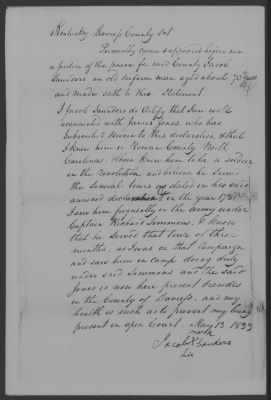 Kentucky Daviess County Sct
Personally came & appeared before me
a justice of the peace for said County Jacob
Saunders an old infirm man aged about 70 years
and made oath to this Statement
I Jacob Saunders do Certify that I am well
acquainted with James Jones who has
Subscribed & sworn to this declaration & that
I knew him in Rowan County North
Carolina. I knew him to be a soldier
in the Revolution and believe he served
the several tours as stated in his said
annexed declaration in the year 17
I saw him frequently in the army under
Captain Richard Simmons. I know
that he served that tour of three
months, as I was on that Campaign
and saw him in Camp doing duty
under said Simmons and the said
Jones is now here present & resides
in the County of Daviess. and my
health is such as to prevent my being
present in open Court. May 13. 1833
Jacob X Sanders
mark
his